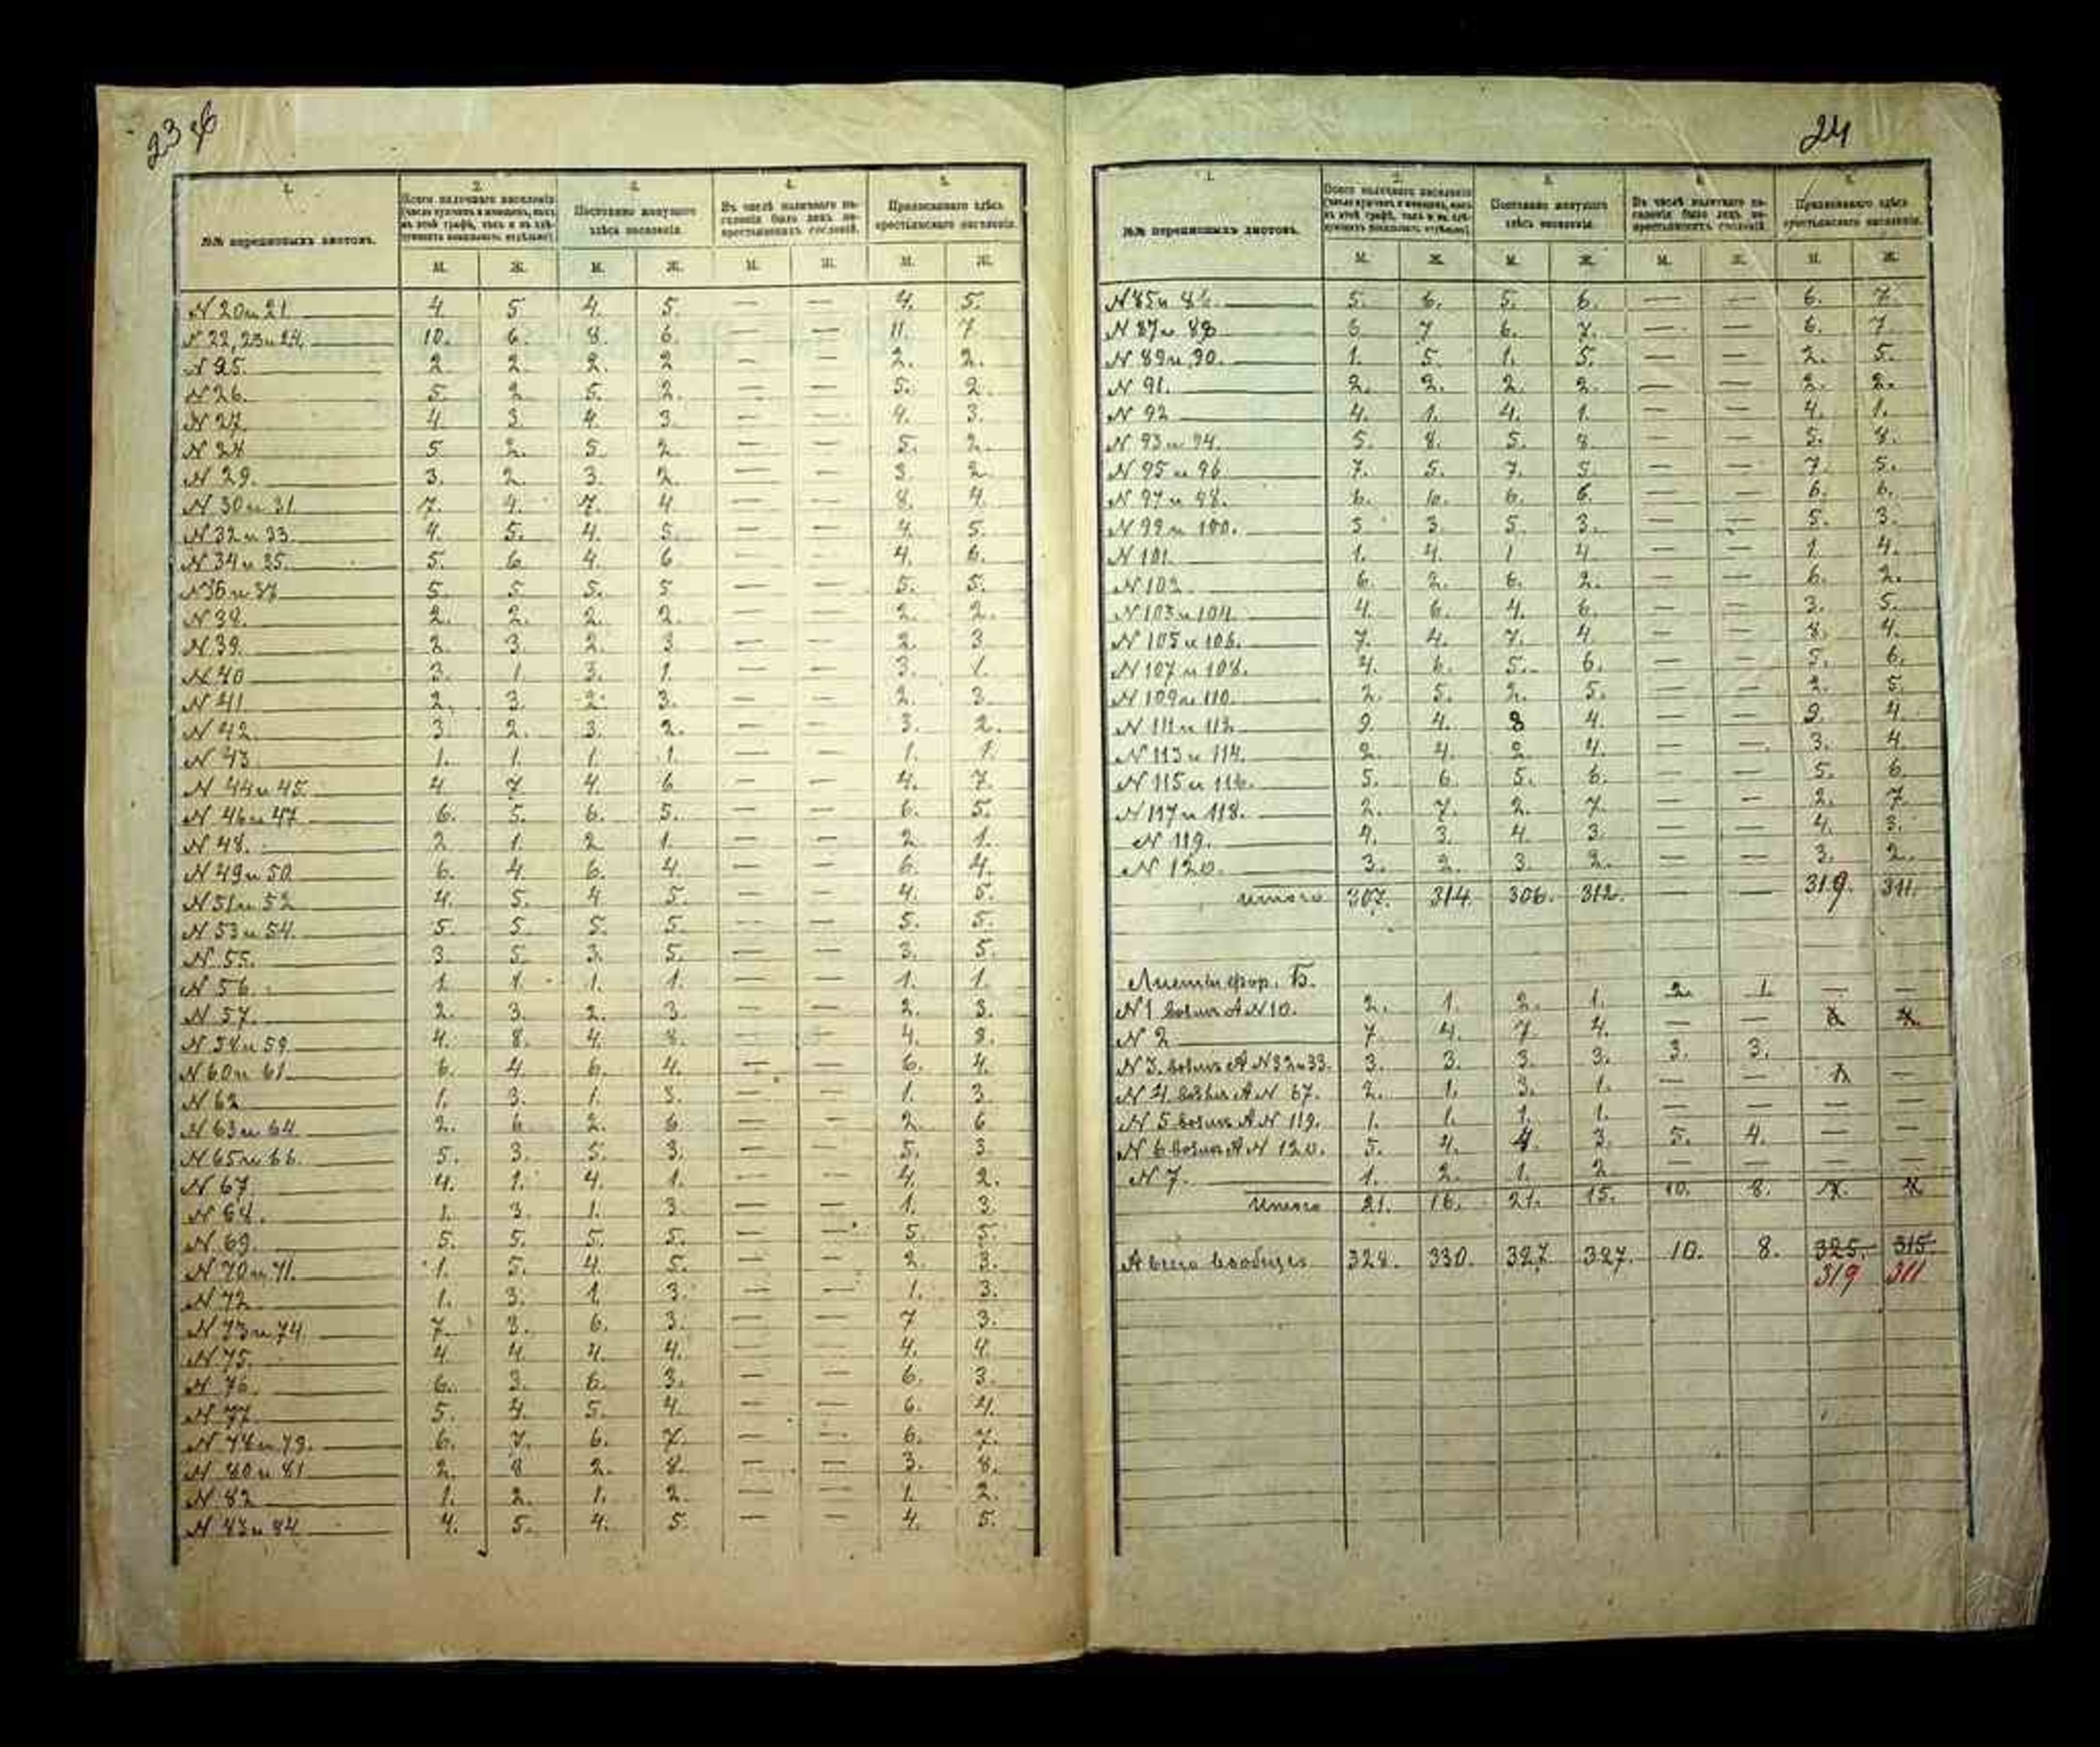 23 об
24
1. 2. 3. 4. 5.
№№ переписныхъ листовъ. Всего наличнаго населенія Постоянно живущаго здѣсь населенія. Въ числѣ наличнаго населенія было лицъ не-крестьянскихъ сословій. Приписаннаго здѣсь крестьянскаго населенія.
М. Ж. М. Ж. М. Ж. М. Ж.
N 20 и 21. 4. 5 4. 5. — — 4. 5.
N 22, 23 и 24. 10. 6. 8. 6. — — 11. 7
N 25. 2 2. 2. 2 — — 2. 2.
N 26. 5. 2 5. 2. — — 5. 2.
N 27. 4 3. 4. 3. — — 4. 3.
N 28 5 2. 5 2. — — 5. 2.
N 29. 3. 2 3. 2. — — 3. 2
N 30 и 31. 7. 4. 7. 4 — — 8. 4.
N 32 и 33. 4. 5. 4. 5. — — 4. 5.
N 34 и 35. 5. 6 4. 6 — — 4. 6.
N 36 и 37 5. 5 5. 5 — — 5. 5.
N 38. 2. 2. 2. 2. — — 2. 2.
N 39. 2. 3 2. 3 — — 2. 3
N 40 3. 1. 3. 1. — — 3. 1.
N 41 2. 3. 2. 3. — — 2. 3.
N 42. 3 2. 3. 2. — — 3. 2.
N 43 1. 1. 1. 1. — — 1. 1.
N 44 и 45. 4 7 4. 6 — — 4. 7.
N 46 и 47 6. 5. 6. 5. — — 6. 5.
N 48. 2 1. 2 1. — — 2 1.
N 49 и 50 6. 4. 6. 4. — — 6. 4.
N 51 и 52 4. 5. 4 5. — — 4. 5.
N 53 и 54. 5. 5 5. 5. — — 5. 5.
N 55. 3. 5. 3. 5. — — 3. 5.
N 56. 1. 1. 1. 1. — — 1. 1.
N 57. 2. 3. 2. 3. — — 2. 3.
N 58 и 59 4. 8. 4. 8. — — 4. 8.
N 60 и 61. 6. 4 6. 4. — — 6. 4.
N 62 1. 3. 1. 3. — — 1. 3.
N 63 и 64 2. 6 2. 6 — — 2. 6
N 65 и 66. 5. 3. 5. 3. — — 5. 3
N 67 4. 1. 4. 1. — — 4. 2.
N 68. 1. 3. 1. 3. — — 1. 3.
N 69. 5. 5. 5. 5. — — 5. 5.
N 70 и 71. 1. 5. 4. 5. — — 2. 3.
N 72. 1. 3. 1. 3. — — 1. 3.
N 73 и 74. 7. 3. 6. 3. — — 7 3.
N 75. 4. 4. 4. 4. — — 4. 4.
N 76. 6. 3. 6. 3. — — 6. 3.
N 77. 5. 4. 5. 4. — — 6. 4.
N 78 и 79. 6. 7. 6. 7. — — 6. 7.
N 80 и 81 2. 8 2. 8. — — 3. 8.
N 82 1. 2. 1. 2. — — 1. 2.
N 83 и 84 4. 5. 4. 5. — — 4. 5.
1. 2. 3. 4. 5.
№№ переписныхъ листовъ. Всего наличнаго населенія Постоянно живущаго здѣсь населенія. Въ числѣ наличнаго населенія было лицъ не-крестьянскихъ сословій. Приписаннаго здѣсь крестьянскаго населенія.
М. Ж. М. Ж. М. Ж. М. Ж.
N 85 и 86. 5. 6. 5. 6. — — 6. 7
N 87 и 88 6 7 6. 7. — — 6. 7.
N 89 и 90. 1. 5. 1. 5. — — 2. 5.
N 91. 2. 2. 2. 2. — — 2. 2.
N 92 4. 1. 4. 1. — — 4. 1.
N 93 и 94. 5. 8. 5. 8. — — 5. 8.
N 95 и 96 7. 5. 7. 5. — — 7. 5.
N 97 и 98. 6. 6. 6. 6. — — 6. 6.
N 99 и 100. 5 3. 5. 3. — — 5. 3.
N 101. 1. 4. 1 4 — — 1. 4.
N 102. 6. 2. 6. 2. — — 6. 2.
N 103 и 104. 4. 6. 4. 6. — — 3. 5.
N 105 и 106. 7. 4. 7. 4. — — 8. 4.
N 107 и 108. 4. 6. 5. 6. — — 5. 6.
N 109 и 110. 2. 5. 2. 5. — — 2. 5.
N 111 и 112. 9. 4. 8 4. — — 9. 4.
N 113 и 114. 2. 4. 2. 4. — — 3. 4.
N 115 и 116. 5. 6. 5. 6. — — 5. 6
N 117 и 118. 2. 7. 2. 7. — — 2. 7.
N 119. 4. 3. 4. 3. — — 4. 3.
N 120. 3. 2. 3. 2. — — 3. 2.
Итого 307. 314. 306. 312. — — 319. 311.
Листы фор. Б.
N 1 А N 10. 2. 1. 2. 1. 2. 1. — —
N 2 7 4. 7 4. — —
N 3. А N 32 и 33. 3. 3. 3. 3. 3. 3.
N 4. А N 67. 2. 1. 3. 1. — — —
N 5 А N 119. 1. 1. 1. 1. — — — —
N 6 А N 120. 5. 4. 4 3. 5. 4. — —
N 7. 1. 2. 1. 2. — —
Итого 21. 16. 21. 15. 10. 8.
А всего вообще 328. 330. 327. 327. 10. 8. 325. 315.
319 311